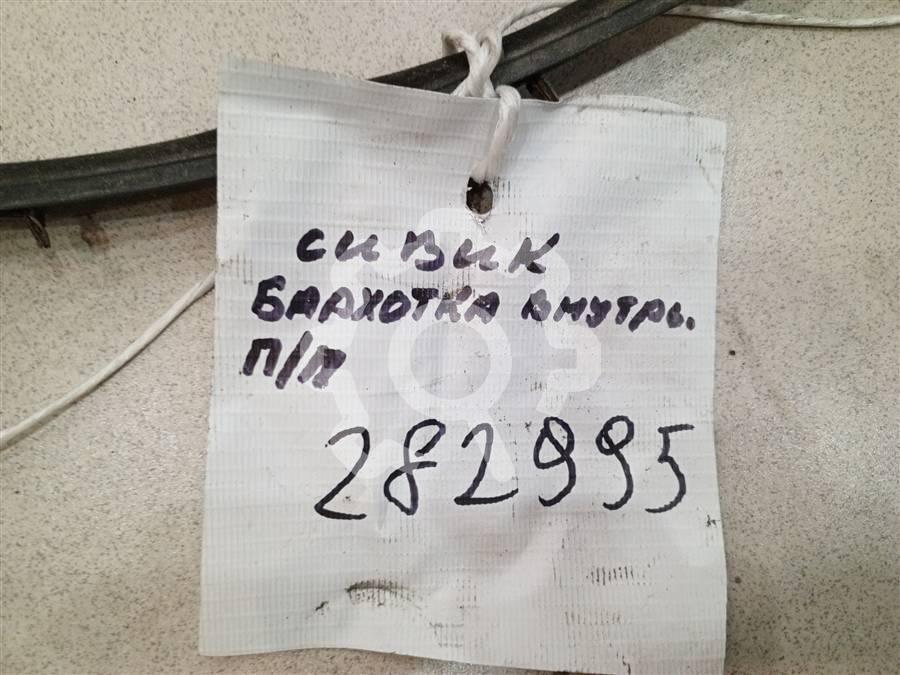 СИВИК
БАРХОТКА ВНУТРЬ.
П/П
282995